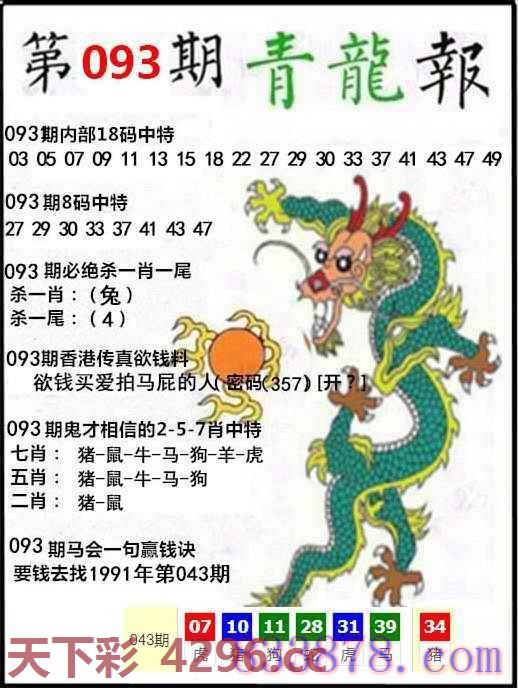 第093期 青龍報
093期内部18码中特
03 05 07 09 11 13 15 18 22 27 29 30 33 37 41 43 47 49
093期8码中特
27 29 30 33 37 41 43 47
093期必绝杀一肖一尾
杀一肖：（兔）
杀一尾：（4）
093期香港传真欲钱料
欲钱买爱拍马屁的人(密码(357)[开？]
093期鬼才相信的2-5-7肖中特
七肖： 猪-鼠-牛-马-狗-羊-虎
五肖： 猪-鼠-牛-马-狗
二肖： 猪-鼠
093期马会一句赢钱诀
要钱去找1991年第043期
043期 07 10 11 28 31 39 34
虎 猪 狗 蛇 虎 马 猪
天下彩 4296.cc
878.com